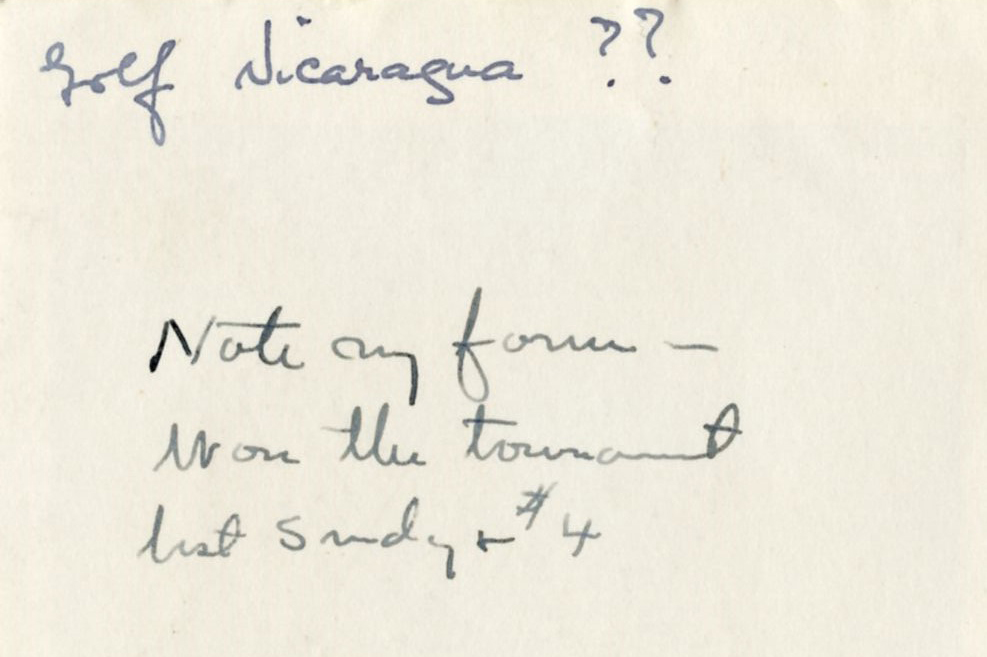 Golf Nicaragua ??
Note my form —
Won the tournament
last Sunday + #4